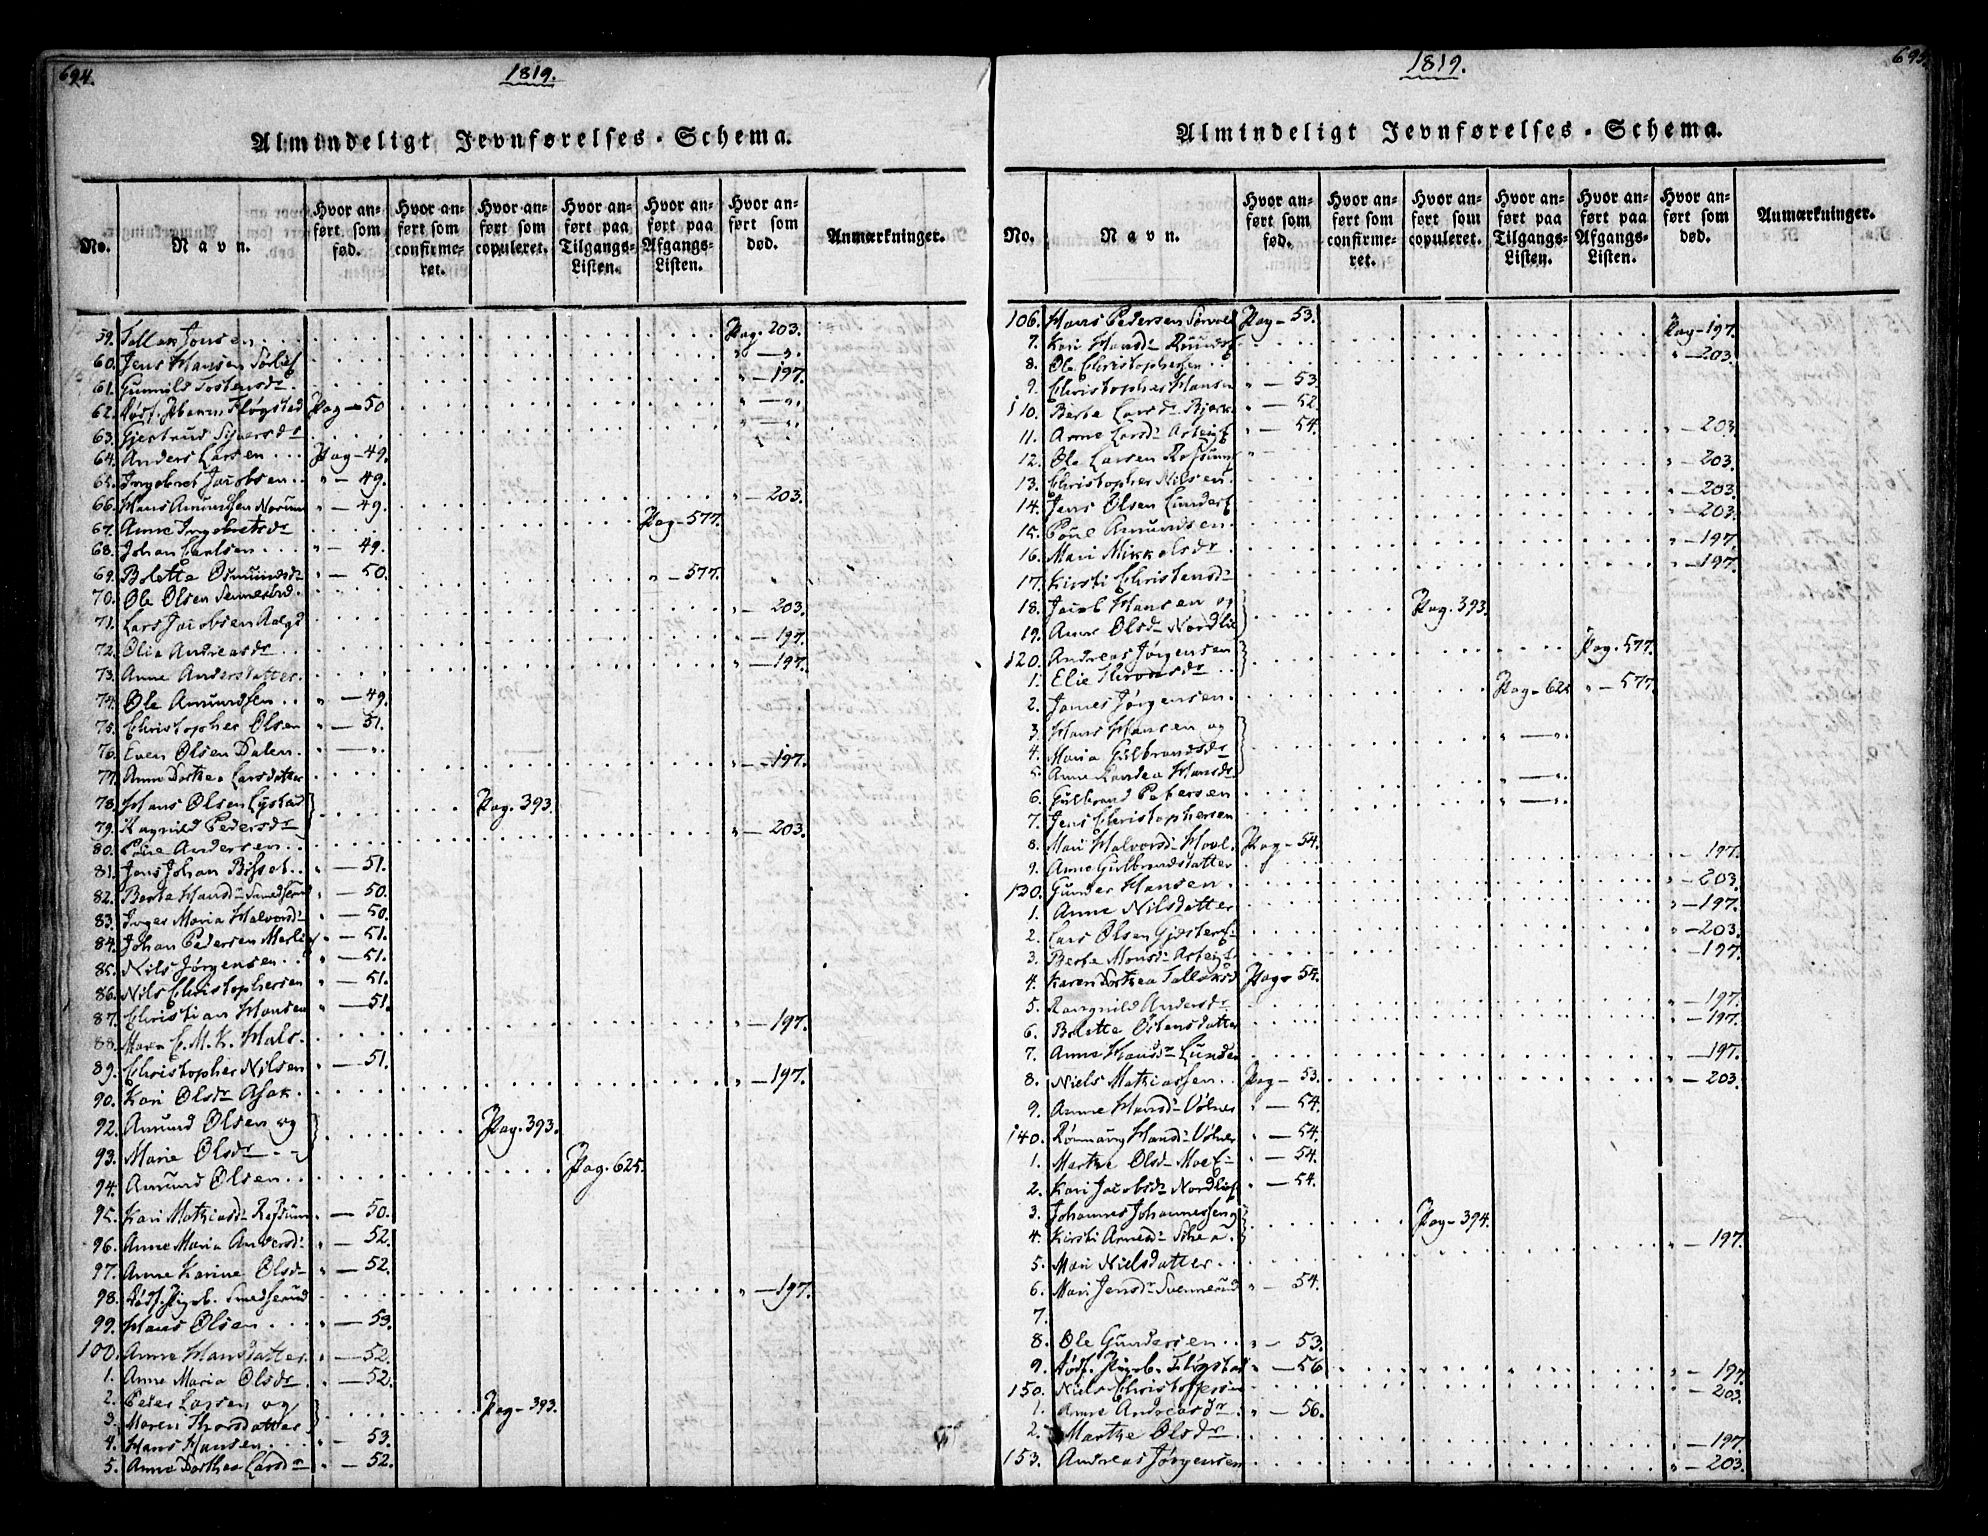 694.
1819.
Almindeligt Jevnførelses-Schema.
No. Navn. Hvor anført som fød. Hvor anført som confirmeret. Hvor anført som copuleret. Hvor anført paa Tilgangs-Listen. Hvor anført paa Afgangs-Listen. Hvor anført som død. Anmærkninger.
59. Tollak Jonsen . . . Pag. 203.
60. Jens Hansen " — ".
61. Gunnild Tostensdr " — 197.
62. Fløgstad Pag — 50 " — ".
63. Gjertrud Siversdr " — ".
64. Anders Larsen . . . Pag — 49.
65. Ingebret Jacobsen . . " — 49.
66. Hans Amundsen " — 49. " — 203.
67. Anne Ingebretsdr Pag — 577.
68. Johan Carlsen . . . " — 49.
69. Bolette Osmundsdr " — 50. " — 577.
70. Ole Olsen
71. Lars Jacobsen " — 203.
72. Olia Andreasdr " — 197.
73. Anne Andersdatter " — 197.
74. Ole Amundsen . . " — 49.
75. Christopher Olsen " — 51.
76. Even Olsen Dalen. " — ".
77. Anne Dorthea Larsdatter " — 197.
78. Hans Olsen Lystad Pag. 393.
79. Ragnild Pedersdr
80. Poul Andersen . . " — 203.
81. Jens Johan " — 51.
82. Berte Hansdr " — 50.
83. Inger Maria Halvorsdr " — 50.
84. Johan Pedersen " — 51.
85. Nils Jørgensen . . " — 51.
86. Nils Christophersen " — 51.
87. Christian Hansen " — 51.
88. Maren C. M. K. " — 197.
89. Christopher Nilsen " — 51.
90. Kari Olsdr Asak. " — 197.
92. Amund Olsen og Pag. 393.
93. Marie Olsdr
94. Amund Olsen . . Pag. 625.
95. Kari Mathiasdr " — 50.
96. Anne Maria Andersdr " — 52.
97. Anne Karine Olsdr " — 52.
98. " — 197.
99. Hans Olsen . . . " — 53.
100. Anne Hansdatter " — 52.
1. Anne Maria Olsdr " — 52.
2. Peder Larsen og Pag — 393.
3. Maren Thorsdatter
4. Hans Hansen . . . " — 53.
5. Anne Dorthea Larsdr " — 52.
695.
1819.
Almindeligt Jevnførelses-Schema.
No. Navn. Hvor anført som fød. Hvor anført som confirmeret. Hvor anført som copuleret. Hvor anført paa Tilgangs-Listen. Hvor anført paa Afgangs-Listen. Hvor anført som død. Anmærkninger.
106. Hans Pedersen Pag — 53.
7. Kari Hansdr Pag — 197.
8. Ole Christophersen " — 203.
9. Christopher Hansen " — 53.
110. Berte Larsdr " — 52.
11. Anne Larsdr " — 54.
12. Ole Larsen " — 203.
13. Christopher Nilsen " — 203.
14. Jens Olsen " — 203.
15. Poul Amundsen " — 203.
16. Mari Mikkelsdr " — 197.
17. Kirsti Christensdr " — 197.
18. Jacob Hansen og Pag. 393.
19. Anne Olsdr Nordlie
120. Andreas Jørgensen Pag. 577.
1. Elie
2. James Jørgensen. Pag — 625 " — 577.
3. Hans Hansen og
4. Maria Gulbrandsdr " — ".
5. Anne Hansdr
6. Gulbrand Petersen " — ".
7. Jens Christophersen " — ".
8. Mari Halvorsdr Pag — 54.
9. Anne Gulbrandsdatter " — 197.
130. Gunder Hansen. " — 203.
1. Anne Nilsdatter " — 197.
2. Lars Olsen " — 203.
3. Berte Monsdr " — 197.
4. Karen Dorthea Tollaksd Pag — 54.
5. Rangnild Andersdr " — 197.
6. Bolette Ostensdatter " — 197.
7. Anne Hansdr " — 197.
8. Niels Mathiassen . . Pag — 53. " — 203.
9. Anne Hansdr Vølner " — 54.
140. Hansdr Vølner " — 54.
1. Marthe Olsdr " — 54.
2. Kari Jacobsdr " — 54.
3. Johannes Johannessen og Pag — 394.
4. Kirsti
5. Mari Nielsdatter . . " — 197.
6. Mari Jensdr " — 54.
7.
8. Ole Gundersen . . " — 53.
9. Fløgstad " — 56 " — 197.
150. Niels Christoffersen " — 203.
1. Anne Andreasdr . " — 56.
2. Marthe Olsdr " — 197.
153. Andreas Jørgensen " — 203.